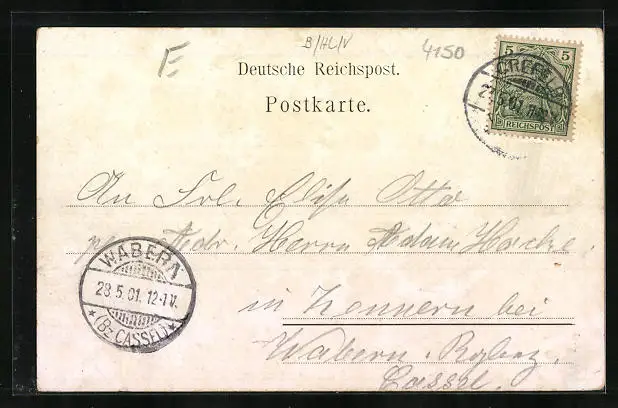 B/HL/V
4150
E
Deutsche Reichspost.
Postkarte.
5 5
REICHSPOST
CREFELD
An Frl. Elise Otto
per Adr. Herrn Adam Hocke
in Zennern bei
Wabern. Rgbez.
Cassel.
WABERN
28.5.01. 12-1V.
* (Bz CASSEL) *